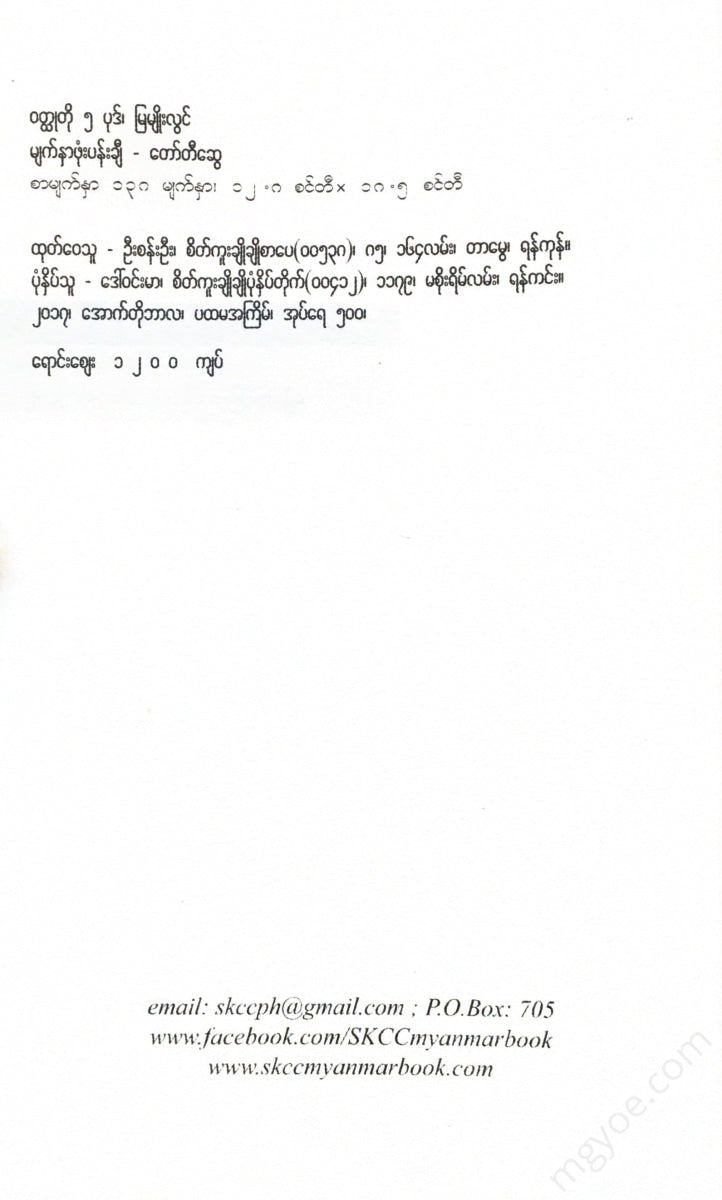 ဝတ္ထုတို ၅ ပုဒ်၊ မြမျိုးလွင်
မျက်နှာဖုံးပန်းချီ - တော်တီဆွေ
စာမျက်နှာ ၁၃၈ မျက်နှာ၊ ၁၂.၈ စင်တီ× ၁၈.၅ စင်တီ
ထုတ်ဝေသူ - ဦးစန်းဦး၊ စိတ်ကူးချိုချိုစာပေ(၀၀၅၃၈)၊ ၈၅၊ ၁၆၄လမ်း၊ တာမွေ၊ ရန်ကုန်။
ပုံနှိပ်သူ - ဒေါ်ဝင်းမာ၊ စိတ်ကူးချိုချိုပုံနှိပ်တိုက်(၀၀၄၁၂)၊ ၁၁၇၉၊ မစိုးရိမ်လမ်း၊ ရန်ကင်း။
၂၀၁၇၊ အောက်တိုဘာလ၊ ပထမအကြိမ်၊ အုပ်ရေ ၅၀၀၊
ရောင်းဈေး ၁၂၀၀ ကျပ်
email: skccph@gmail.com ; P.O.Box: 705
www.facebook.com/SKCCmyanmarbook
www.skccmyanmarbook.com
mgyoe.com